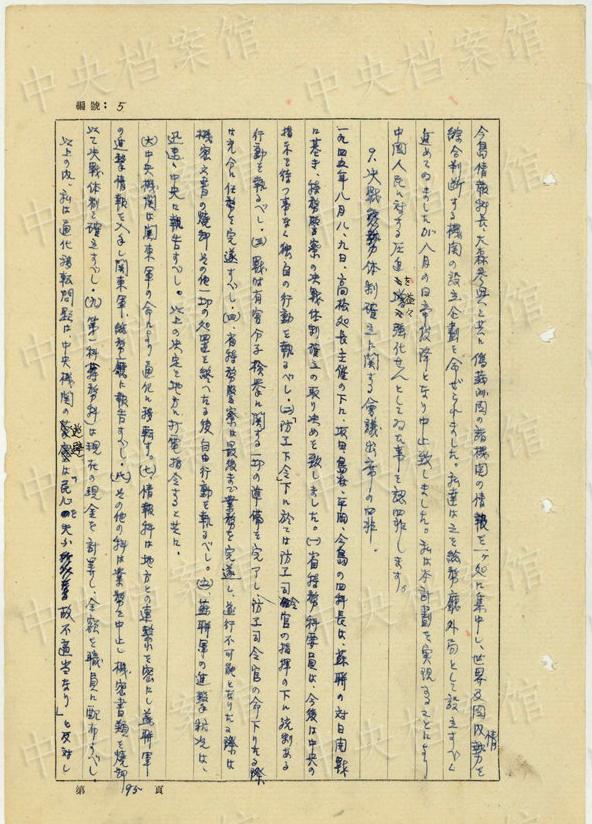 中央档案馆
中央档案馆
編號：5
今島情報科長、大森参与と共に偽満所関の諸機関の情報を一ヶ処に集中し、世界及国内情勢を
綜合判断する機関の設立企劃を命ぜられました。私達は之を総務庁外局として設立すべく
進めてゐましたが八月の日帝投降となり中止致しました。私は本計劃を実現することにより
中国人民に対する圧迫を益々強化せんとしてゐた事を認罪します。
9. 決戦体制確立に関する会議出席の罪。
一九四五年八月八、九日、高検処長主催の下に、島谷、平岡、今島の四科長は、蘇聯の対日開戦
に基き、特務警察の決戦体制確立の取り決めを致しました。(一)省特務科要員は、今後は中央の
指示を待つ事なく独自の行動を執るべし。(二)「防卫下令」下に於ては防卫司令官の指揮の下に統制ある
行動を執るべし。(三)戦時有害分子検挙に関する一切の準備を完了し、防卫司令官の命下りたる際
は完全に任務を完遂すべし。(四)省特務警察は最後まで業務を完遂し、遂行不可能となりたる際は
機密文書の焼却その他一切の処置を終へたる後自由行動を執るべし。(五)蘇聯軍の進撃状況は、
迅速に中央に報告すべし。以上の決定を地方に打電指令すると共に、
(六)中央機関は関東軍の命により通化に移転す。(七)情報科は地方との連繋を密にし蘇聯軍
の進撃情報を入手し関東軍、総務庁に報告すべし。(八)その他の科は業務を中止し機密書類を焼却
以て決戦体制を確立すべし。(九)第一科(庶務科)は現在の現金を計算し、全額を職員に配布すべし。
以上の内、私は通化移転問題は、中央機関の逃避は「民心を失ふ故不適当なり」と反対し
第 95 頁